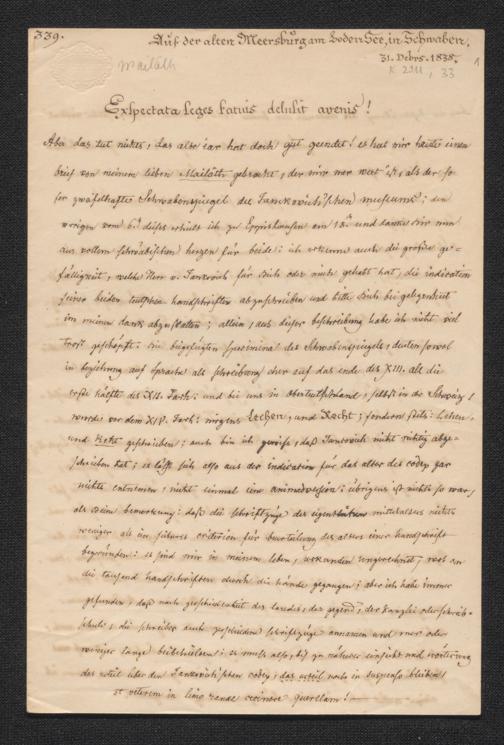 339.
Auf der alten Meersburg am Boden See, in Schwaben,
31. Debrs. 1838.
Mailáth
K 2911, 33
Exspectata seges vanis delusit avenis!
Aber das tut nichts, das alte iar hat doch gut geendet! es hat mir heute einen
brief von meinem lieben Mailáth gebracht, der mir mer wert ist, als der so
ser zwäfelhafte Schwabenspiegel des Jankowich'schen museums; den
vorigen vom 6t. dieses erhielt ich zu Eppishausen am 18t. und danke dir nun
aus vollem schwäbischen herzen für beide: ich erkenne auch die große ge-
fälligkeit, welche Herr v. Jankowich für dich oder mich gehabt hat, die indication
seiner beiden teutschen handschriften abzuschreiben und bitte dich bei gelegenheit
im meinen dank abzustatten; allein, aus diser beschreibung habe ich nicht viel
trost geschöpft. die beigelegten specimina des Schwabenspiegels, deuten sowol
in beziehung auf sprache als schreibung eher auf das ende des XIII. als die
erste hälfte des XII. Jarh: und bei uns in oberteutschland, selbst in der Schweiz
wurde vor dem XIV. Jarh: nirgens Lechen, und Recht; sondern stets: Lehen,
und Reht geschrieben; auch bin ich gewiss, daß Jankowich nicht richtig abge-
schrieben hat; es läßt sich also aus der indication für das alter des codex gar
nichts entnemen, nicht einmal eine animadversion: übrigens ist nichts so war,
als deine bemerkung: daß die schriftzüge des eigentlichen mittelalters nichts
weniger als ein sicheres criterion für beurteilung des alters einer handschrift
begründen: es sind mir in meinem leben, urkunden ungerechnet, wol an
die tausend handschriften durch die hände gegangen; aber ich habe immer
gefunden, daß nach geschicklichkeit des landes, der gegend, der kanzlei oder schreib-
schule, die schreiber auch verschieden schriftzüge annamen und mer oder
weniger lange beibehielten: es muß also, biß zu näherer einsicht und erörterung
das urteil über den Jankowich'schen codex, das urteil noch in suspenso bleiben,
et veterem in limo ranae cecinere querelam! —